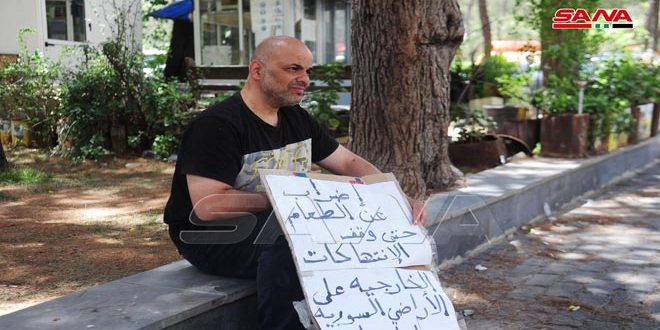 SANA
إضراب
عن الطعام
حتى وقف
الإنتهاكات
الخارجيه على
الأراضي السوريه